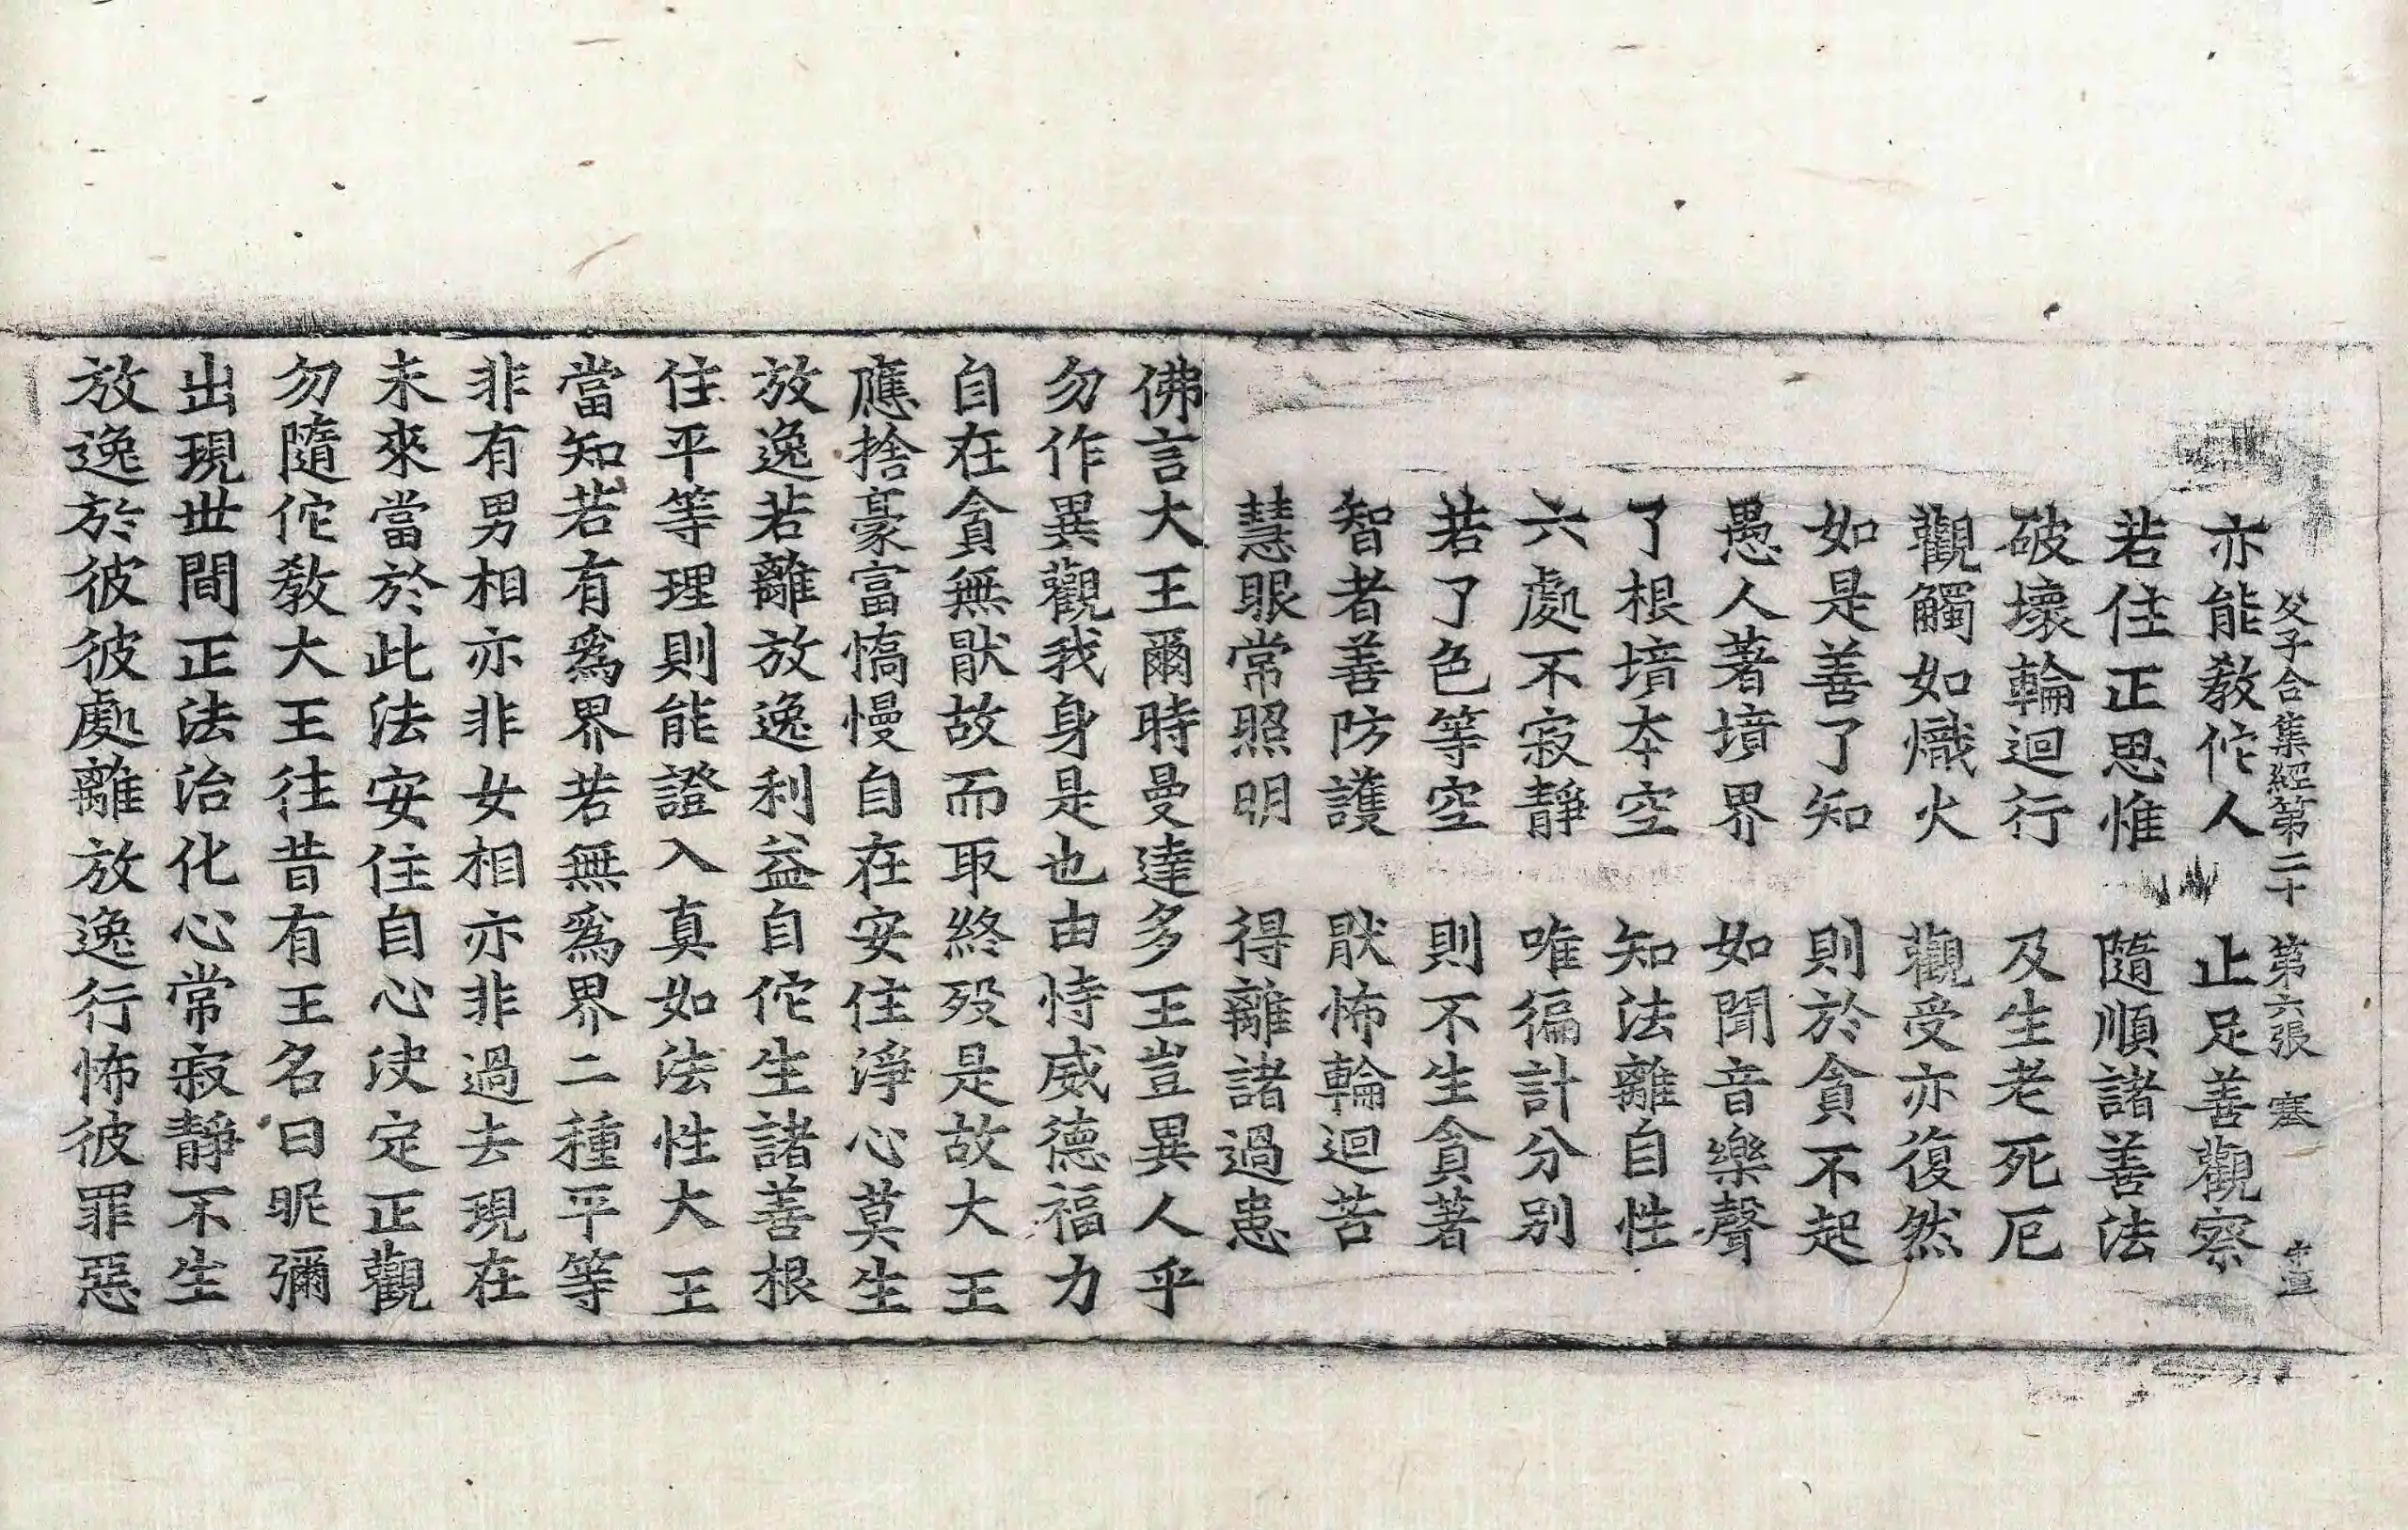 父子合集經第二十　第六張　塞
亦能教佗人　止足善觀察
若住正思惟　隨順諸善法
破壞輪迴行　及生老死厄
觀觸如熾火　觀受亦復然
如是善了知　則於貪不起
愚人著境界　如聞音樂聲
了根境本空　知法離自性
六處不寂靜　唯徧計分別
若了色等空　則不生貪著
智者善防護　猒怖輪迴苦
慧眼常照明　得離諸過患
佛言大王爾時曼達多王豈異人乎
勿作異觀我身是也由恃威德福力
自在貪無猒故而取終歿是故大王
應捨豪富憍慢自在安住淨心莫生
放逸若離放逸利益自佗生諸善根
住平等理則能證入真如法性大王
當知若有爲界若無爲界二種平等
非有男相亦非女相亦非過去現在
未來當於此法安住自心決定正觀
勿隨佗教大王往昔有王名曰昵彌
出現世間正法治化心常寂靜不生
放逸於彼彼處離放逸行怖彼罪惡